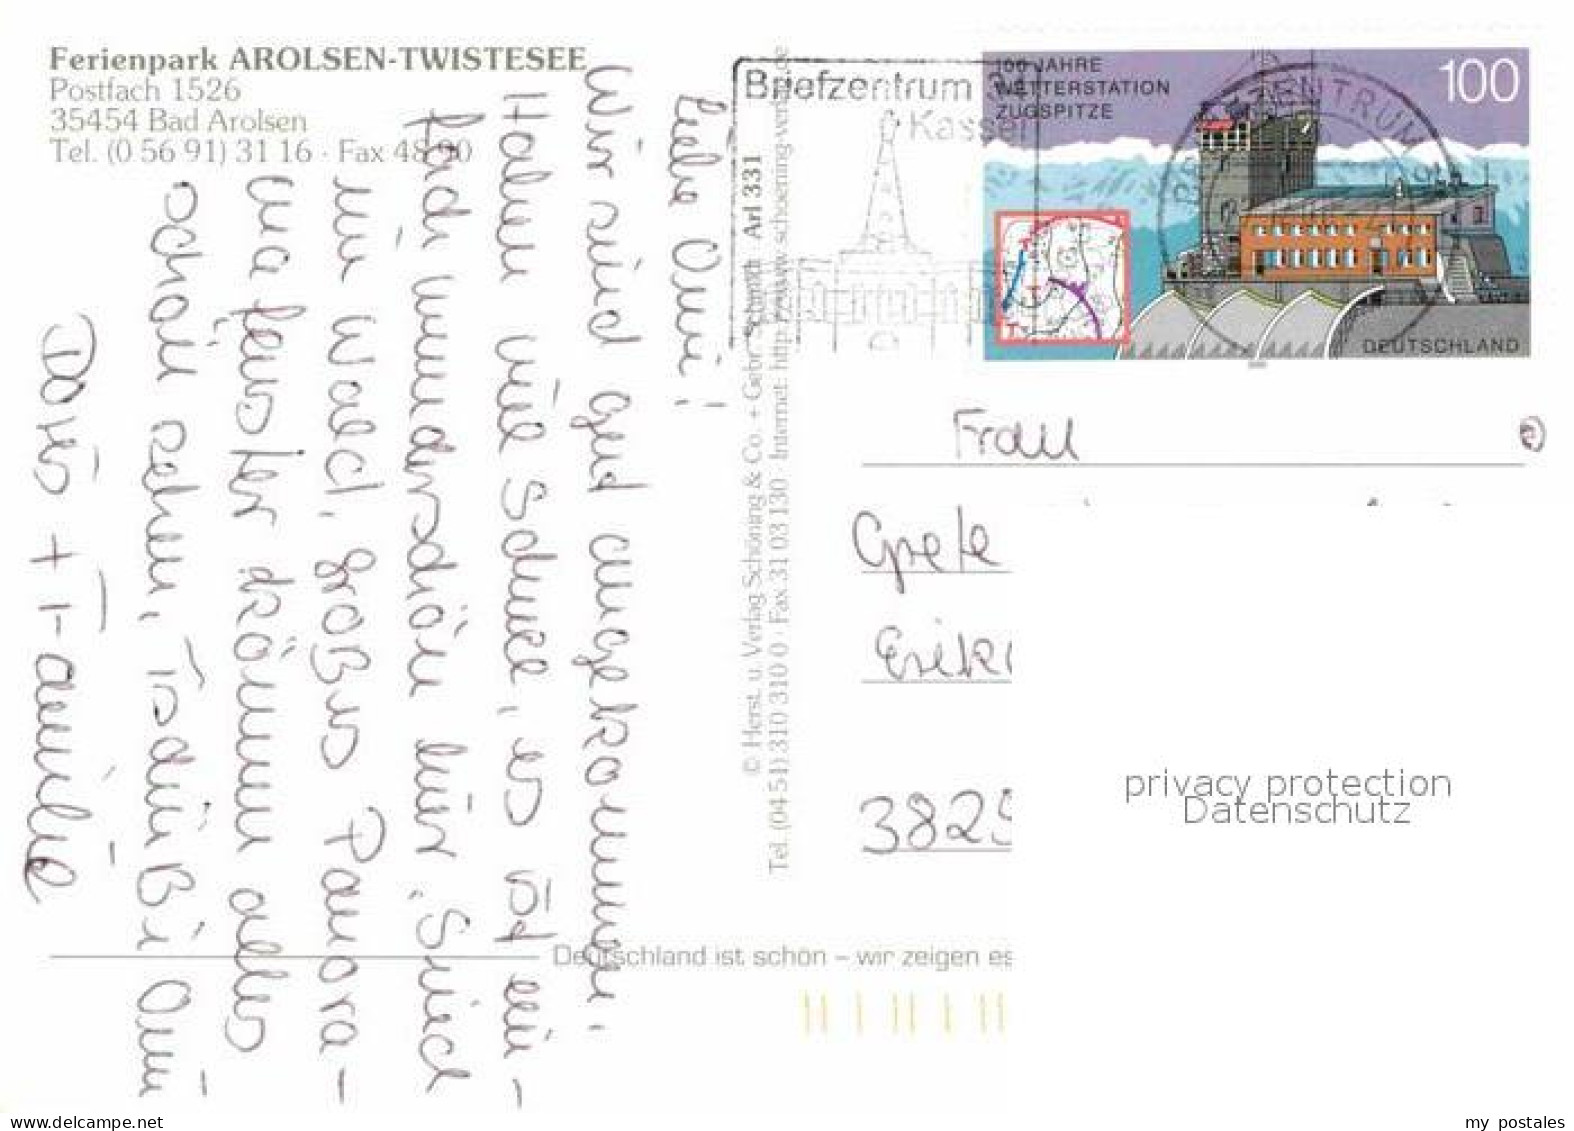 Ferienpark AROLSEN-TWISTESEE
Postfach 1526
35454 Bad Arolsen
Tel. (0 56 91) 31 16 · Fax 48 90
Liebe Omi!
Wir sind gut angekommen.
Haben viel Schnee, es ist ein-
fach wunderschön hier. Sind
im Wald, großes Panora-
mafenster können alles
schön sehen. Tschüß Omi
Doris + Familie
© Herst. u. Verlag Schöning & Co. + Gebr. Schmidt Arl 331
Tel. (04 51) 310 310 0 · Fax 31 03 130 · Internet: http://www.schoening-verlag.de
Briefzentrum 34
Kassel
BRIEFZENTRUM
100 JAHRE
WETTERSTATION
ZUGSPITZE
100
DEUTSCHLAND
Frau
Grete
Erik
3825
privacy protection
Datenschutz
Deutschland ist schön – wir zeigen es
my postales